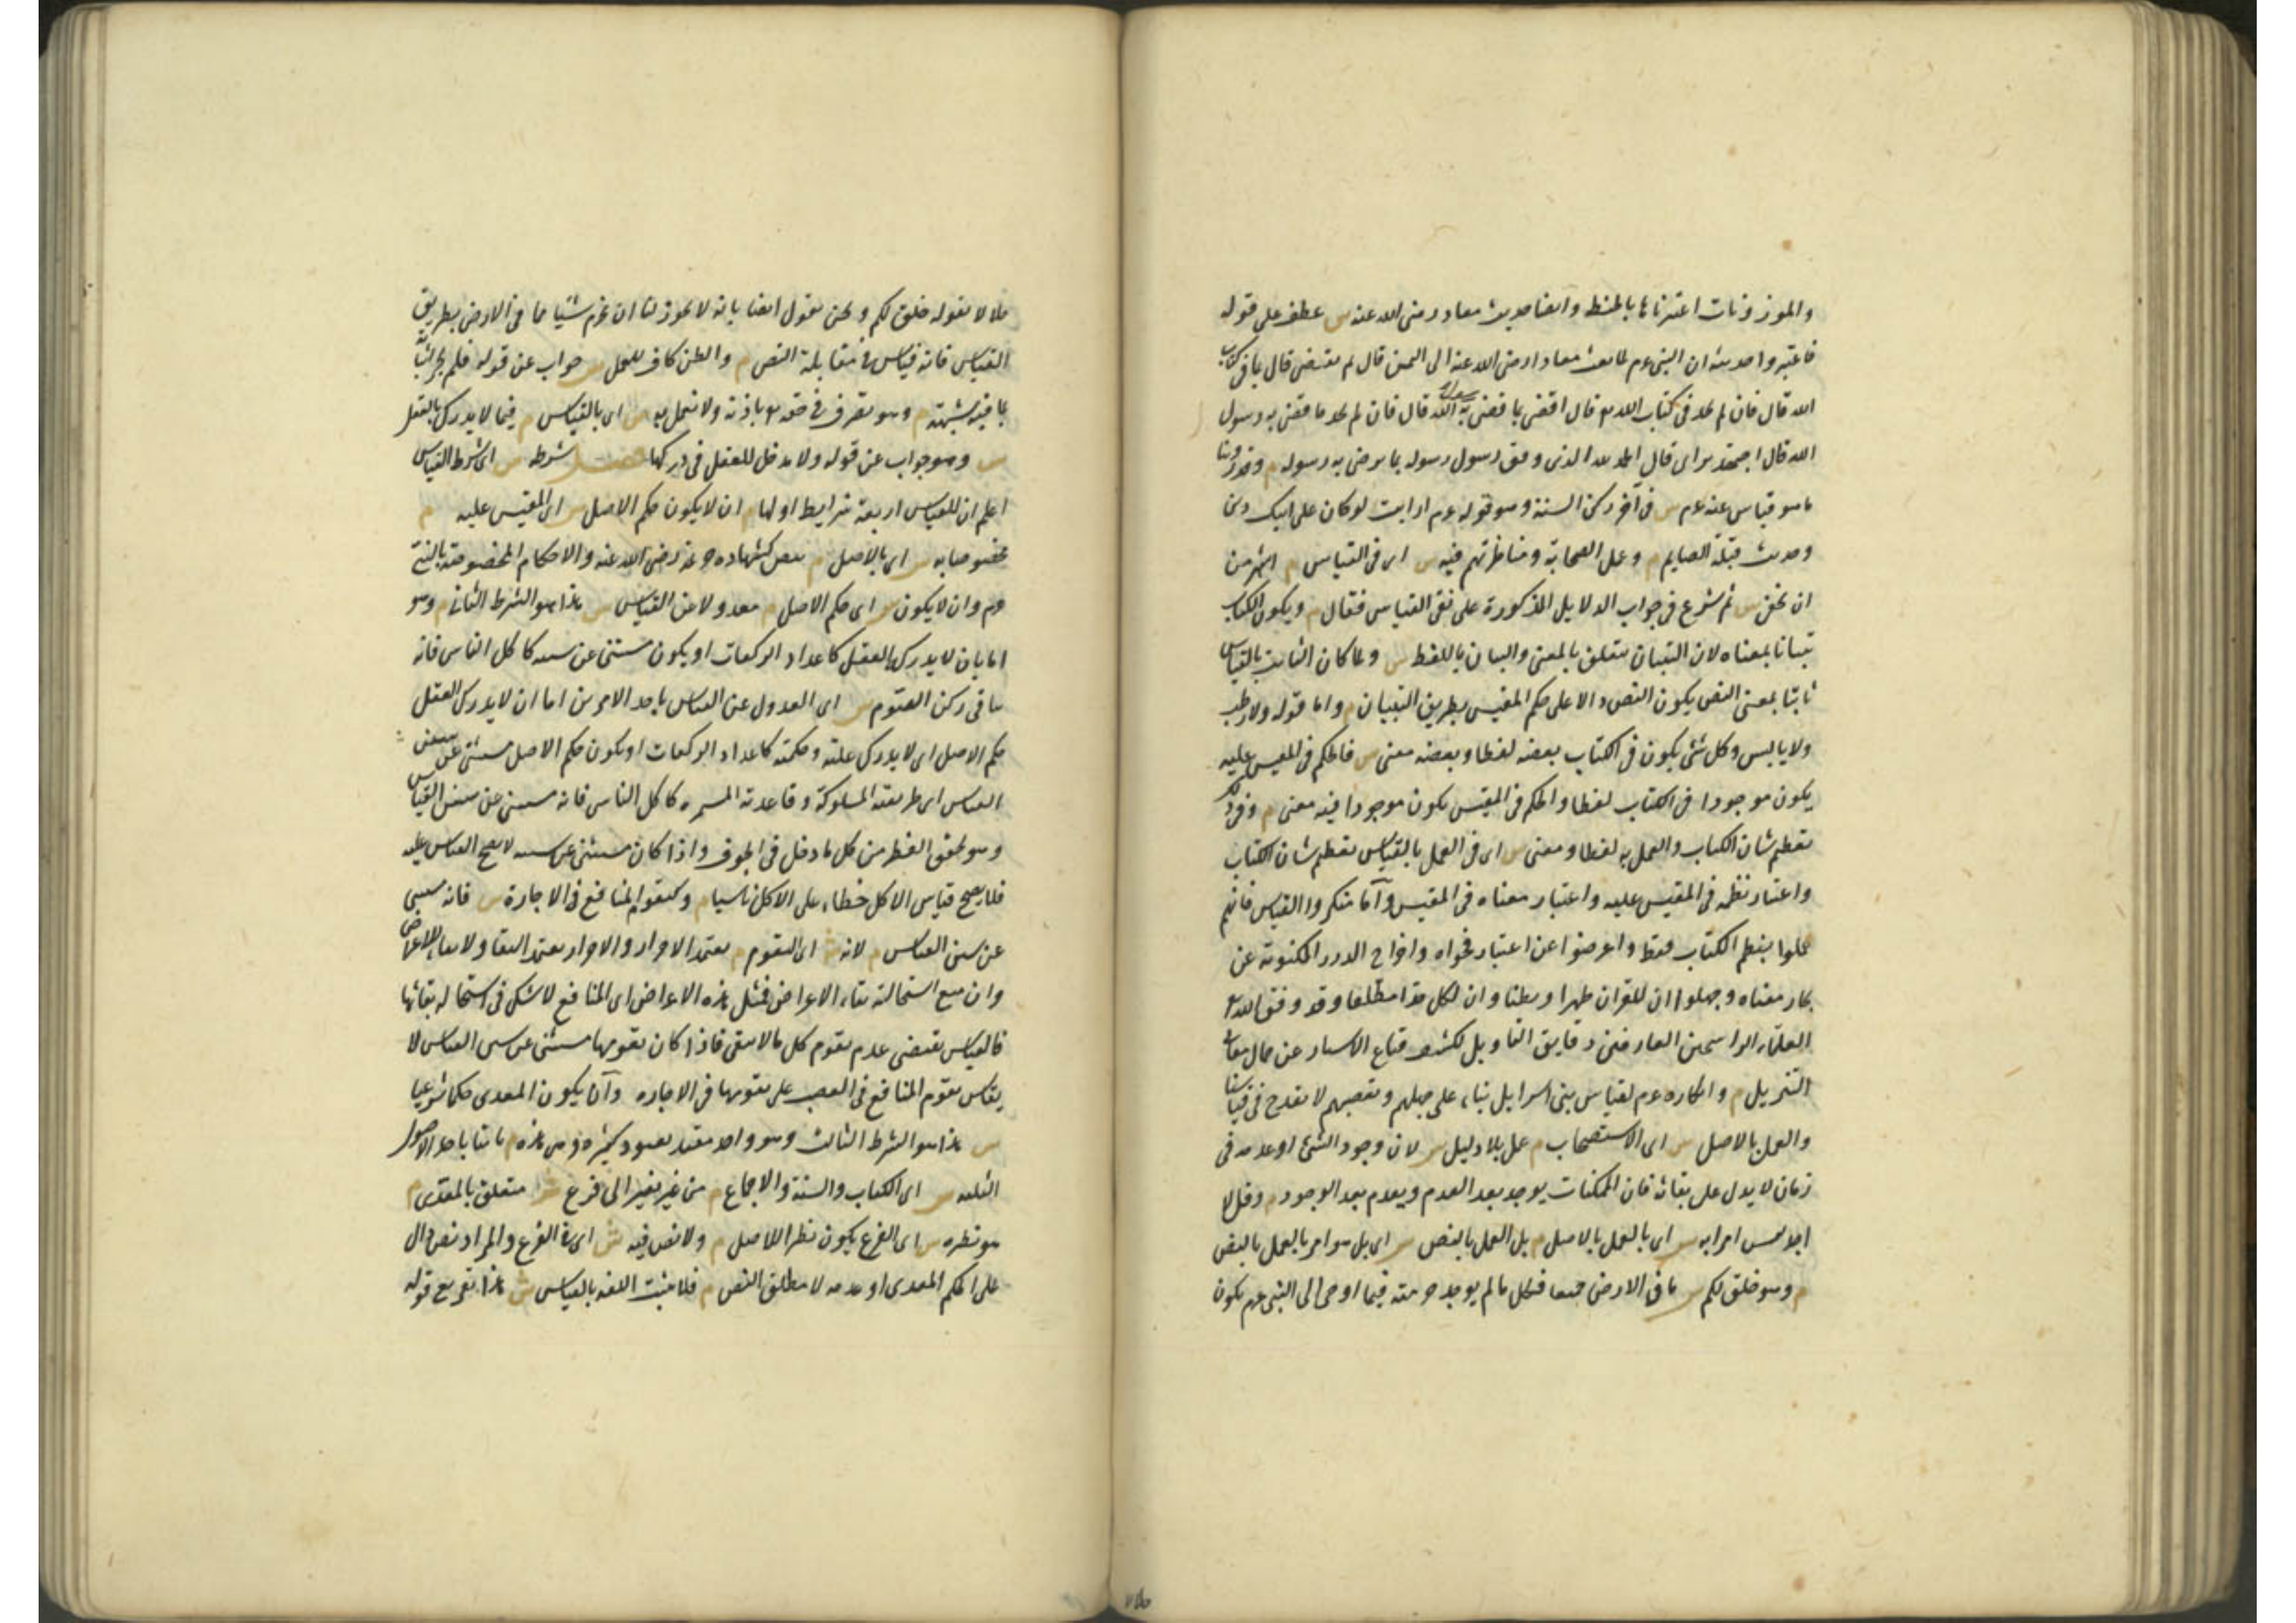 والموزونات اعتبرناها بالحنطة وايضا حديث معاذ رضى الله عنه ش عطف على قوله
فاعتبروا حديثه ان النبي عم لما بعث معاذا رضى الله عنه الى اليمن قال بم تقضى قال بما في كتاب
الله قال فان لم تجد في كتاب الله قال اقضى بما قضى به رسول الله قال فان لم تجد ما قضى به رسول
الله قال اجتهد براى قال الحمد لله الذى وفق رسول رسوله بما يرضى به رسوله م وقد روينا
ما هو قياس عنه عم ش في آخر ركن السنة وهو قوله عم ارايت لو كان على ابيك دين
وحديث قبلة الصايم م وعمل الصحابة ومناظرتهم فيه ش اى في القياس م اشهر من
ان تخفى ش ثم شرع في جواب الدلايل المذكورة على نفى القياس فقال م ويكون الكتاب
تبيانا بمعناه لان التبيان متعلق بالمعنى والبيان باللفظ ش ولما كان الثابت بالقياس
ثابتا بمعنى النص يكون النص دالا على حكم المقيس بطريق التبيان م واما قوله ولا رطب
ولا يابس وكل شئ يكون في الكتاب بعضه لفظا وبعضه معنى ش فالحكم في المقيس عليه
يكون موجودا في الكتاب لفظا والحكم في المقيس يكون موجودا فيه معنى م وفى ذلك
تعظيم شان الكتاب والعمل به لفظا ومعنى ش اى في العمل بالقياس تعظيم شان الكتاب
واعتبار نظمه في المقيس عليه واعتبار معناه في المقيس واما منكروا القياس فانهم
عملوا بنظم الكتاب فقط واعرضوا عن اعتبار فحواه واخراج الدرر المكنونة عن
بحار معناه وجهلوا ان للقران ظهرا وبطنا وان لكل حد مطلعا وقد وفق الله
العلماء الراسخين العارفين دقايق التاويل لكشف قناع الاستار عن جمال معانى
التنزيل م وانكاره عم لقياس بنى اسرايل بناء على جهلهم وتعصبهم لا يقدح في قياسنا
والعمل بالاصل ش اى الاستصحاب م عمل بلا دليل ش لان وجود الشئ او عدمه في
زمان لا يدل على بقائه فان الممكنات يوجد بعد العدم ويعدم بعد الوجود م وقل لا
اجد ليس امرا به ش اى بالعمل بالاصل م بل العمل بالنص ش اى بل هو امر بالعمل بالنص
م وهو خلق لكم ش ما في الارض جميعا فكل ما لم يوجد حرمته فيما اوحى الى النبي عم يكون
حلالا بقوله خلق لكم ونحن نقول ايضا بانه لا يجوز لنا ان نحرم شئيا مما في الارض بطريق
القياس فانه قياس في مقابلة النص م والظن كاف للعمل ش جواب عن قوله فلم يجز اثباته
بما فيه شبهة م وهو تصرف في حقه باذنه ولا نعمل به ش اى بالقياس م فيما لا يدرك بالعقل
ش وهو جواب عن قوله ولا مدخل للعقل في دركها فصل شرطه ش اى شرط القياس
اعلم ان للقياس اربعة شرايط اولها م ان لا يكون حكم الاصل ش اى المقيس عليه م
مخصوصا به ش اى بالاصل م بنص كشهادة خزيمة رضى الله عنه والاحكام المخصوصة بالنبي
عم وان لا يكون ش اى حكم الاصل م معدولا عن القياس ش هذا هو الشرط الثانى م وهو
اما بان لا يدرك بالعقل كاعداد الركعات او يكون مستثنى عن سننه كاكل الناس فانه
ينافى ركن الصوم ش اى العدول عن القياس باحد الامرين اما ان لا يدرك العقل
حكم الاصل اى لا يدرك علته وحكمته كاعداد الركعات او يكون حكم الاصل مستثنى عن سنن
القياس اى طريقته المسلوكة وقاعدته المستمرة كاكل الناس فانه مستثنى عن سنن القياس
وهو تحقق الفطر من كل ما دخل في الجوف واذا كان مستثنى عن سننه لا يصح القياس عليه
فلا يصح قياس الاكل خطاء على الاكل ناسيا م وكتقوم المنافع في الاجارة ش فانه مستثنى
عن سنن القياس م لانه ش اى التقوم م يعتمد الاحراز والاحراز يعتمد البقا ولا بقاء للاعراض
وان منع استحالة بقاء الاعراض فمثل هذه الاعراض اى المنافع لا شك في استحالة بقائها
فالقياس يقتضى عدم تقوم كل ما لا يبقى فاذا كان تقومها مستثنى عن سنن القياس لا
يقاس تقوم المنافع في الغصب على تقومها في الاجاره وان يكون المعدى حكما شرعيا
ش هذا هو الشرط الثالث وهو واحد مقيد بقيود كثيرة وهى هذه م ثابتا باحد الاصول
الثلثه ش اى الكتاب والسنة والاجماع م من غير تغيير الى فرع ش متعلق بالمعدى م
هو نظيره ش اى الفرع يكون نظيرا للاصل م ولا نص فيه ش اى في الفرع والمراد نص دال
على الحكم المعدى او عدمه لا مطلق النص م فلا يثبت اللغة بالقياس ش هذا تفريع قوله